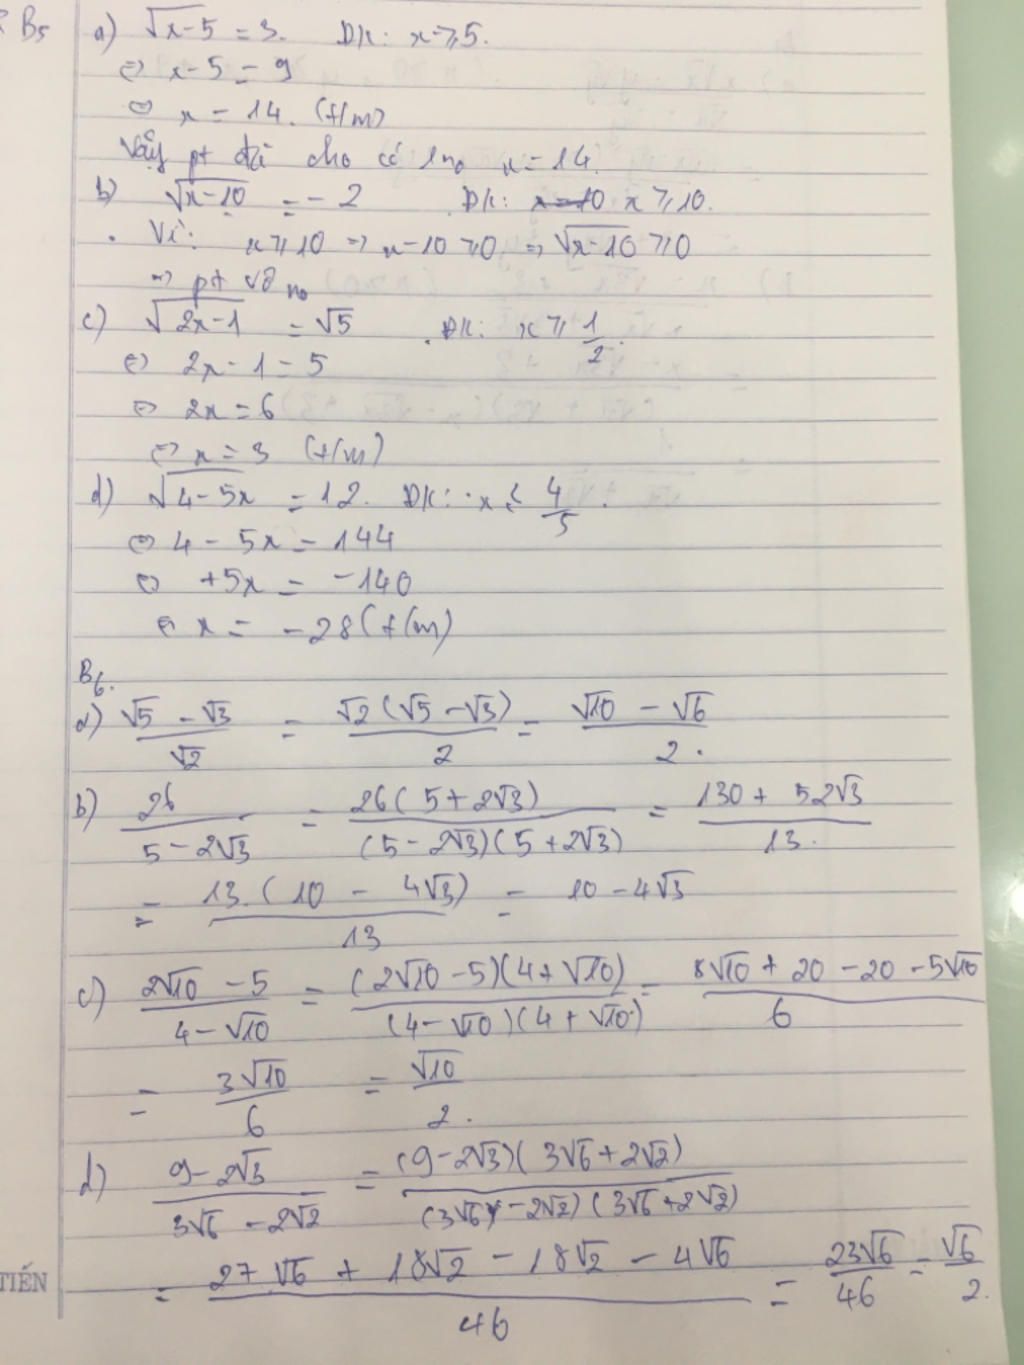 B5 a) √x-5 = 3. ĐK: x ≥ 5.
⇔ x-5 = 9
⇔ x = 14. (t/m)
Vậy pt đã cho có 1 no x = 14.
b) √x-10 = -2 ĐK: x ≥ 10.
Vì: x ≥ 10 ⇒ x-10 ≥ 0 ⇒ √x-10 ≥ 0
⇒ pt vô no
c) √2x-1 = √5 ĐK: x ≥ 1/2.
⇔ 2x-1 = 5
⇔ 2x = 6
⇔ x = 3 (t/m)
d) √4-5x = 12. ĐK: x ≤ 4/5.
⇔ 4 - 5x = 144
⇔ +5x = -140
⇔ x = -28 (t/m)
B6.
a) (√5 - √3)/√2 = √2(√5 - √3)/2 = (√10 - √6)/2.
b) 26/(5 - 2√3) = 26(5 + 2√3)/(5 - 2√3)(5 + 2√3) = (130 + 52√3)/13.
= 13.(10 - 4√3)/13 = 10 - 4√3
c) (2√10 - 5)/(4 - √10) = (2√10 - 5)(4 + √10)/(4 - √10)(4 + √10) = (8√10 + 20 - 20 - 5√10)/6
= 3√10/6 = √10/2.
d) (9 - 2√3)/(3√6 - 2√2) = (9 - 2√3)(3√6 + 2√2)/(3√6 - 2√2)(3√6 + 2√2)
= (27√6 + 18√2 - 18√2 - 4√6)/46 = 23√6/46 = √6/2.
TIẾN